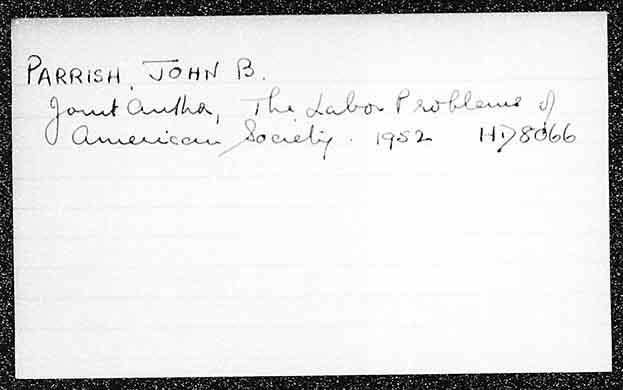 PARRISH, JOHN B.
Joint Author, The Labor Problems of
American Society. 1952 HD8066